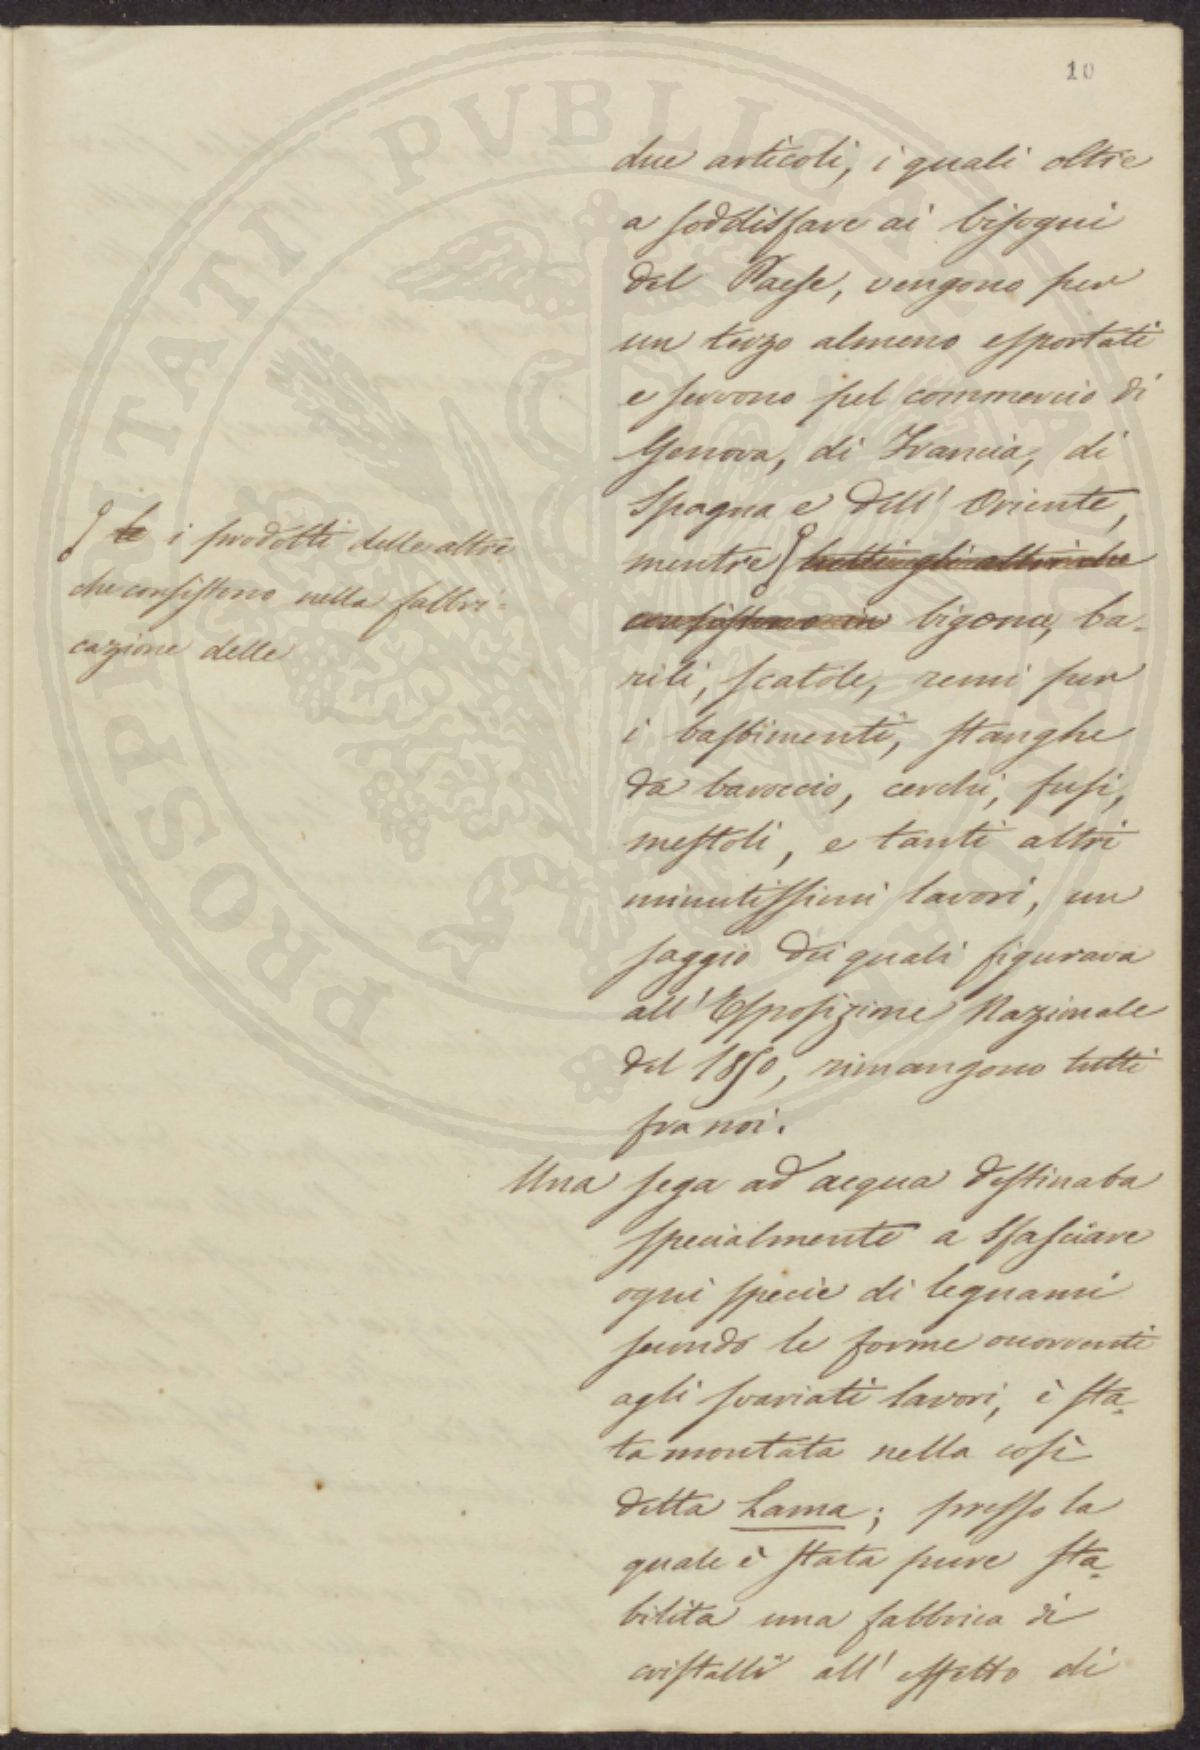 10
due articoli, i quali oltre
a soddisfare ai bisogni
del Paese, vengono per
un terzo almeno esportati
e servono pel commercio di
Genova, di Francia, di
Spagna e dell' Oriente,
mentre tutti gli altri che
consistono in bigonce, ba-
rili, scatole, remi per
i bastimenti, stanghe
da baroccio, cerchi, fusi,
mestoli, e tanti altri
minutissimi lavori, un
saggio dei quali figurava
all' Esposizione Nazionale
del 1850, rimangono tutti
fra noi.
le i prodotti delle altre
che consistono nella fabbri-
cazione delle
Una sega ad acqua destinata
specialmente a sfasciare
ogni specie di legnami
secondo le forme occorrenti
agli svariati lavori, è sta-
ta montata nella così
detta Lama; presso la
quale è stata pure sta-
bilita una fabbrica di
cristalli all' effetto di
PROSPERITATI PUBLICAE AUGENDAE